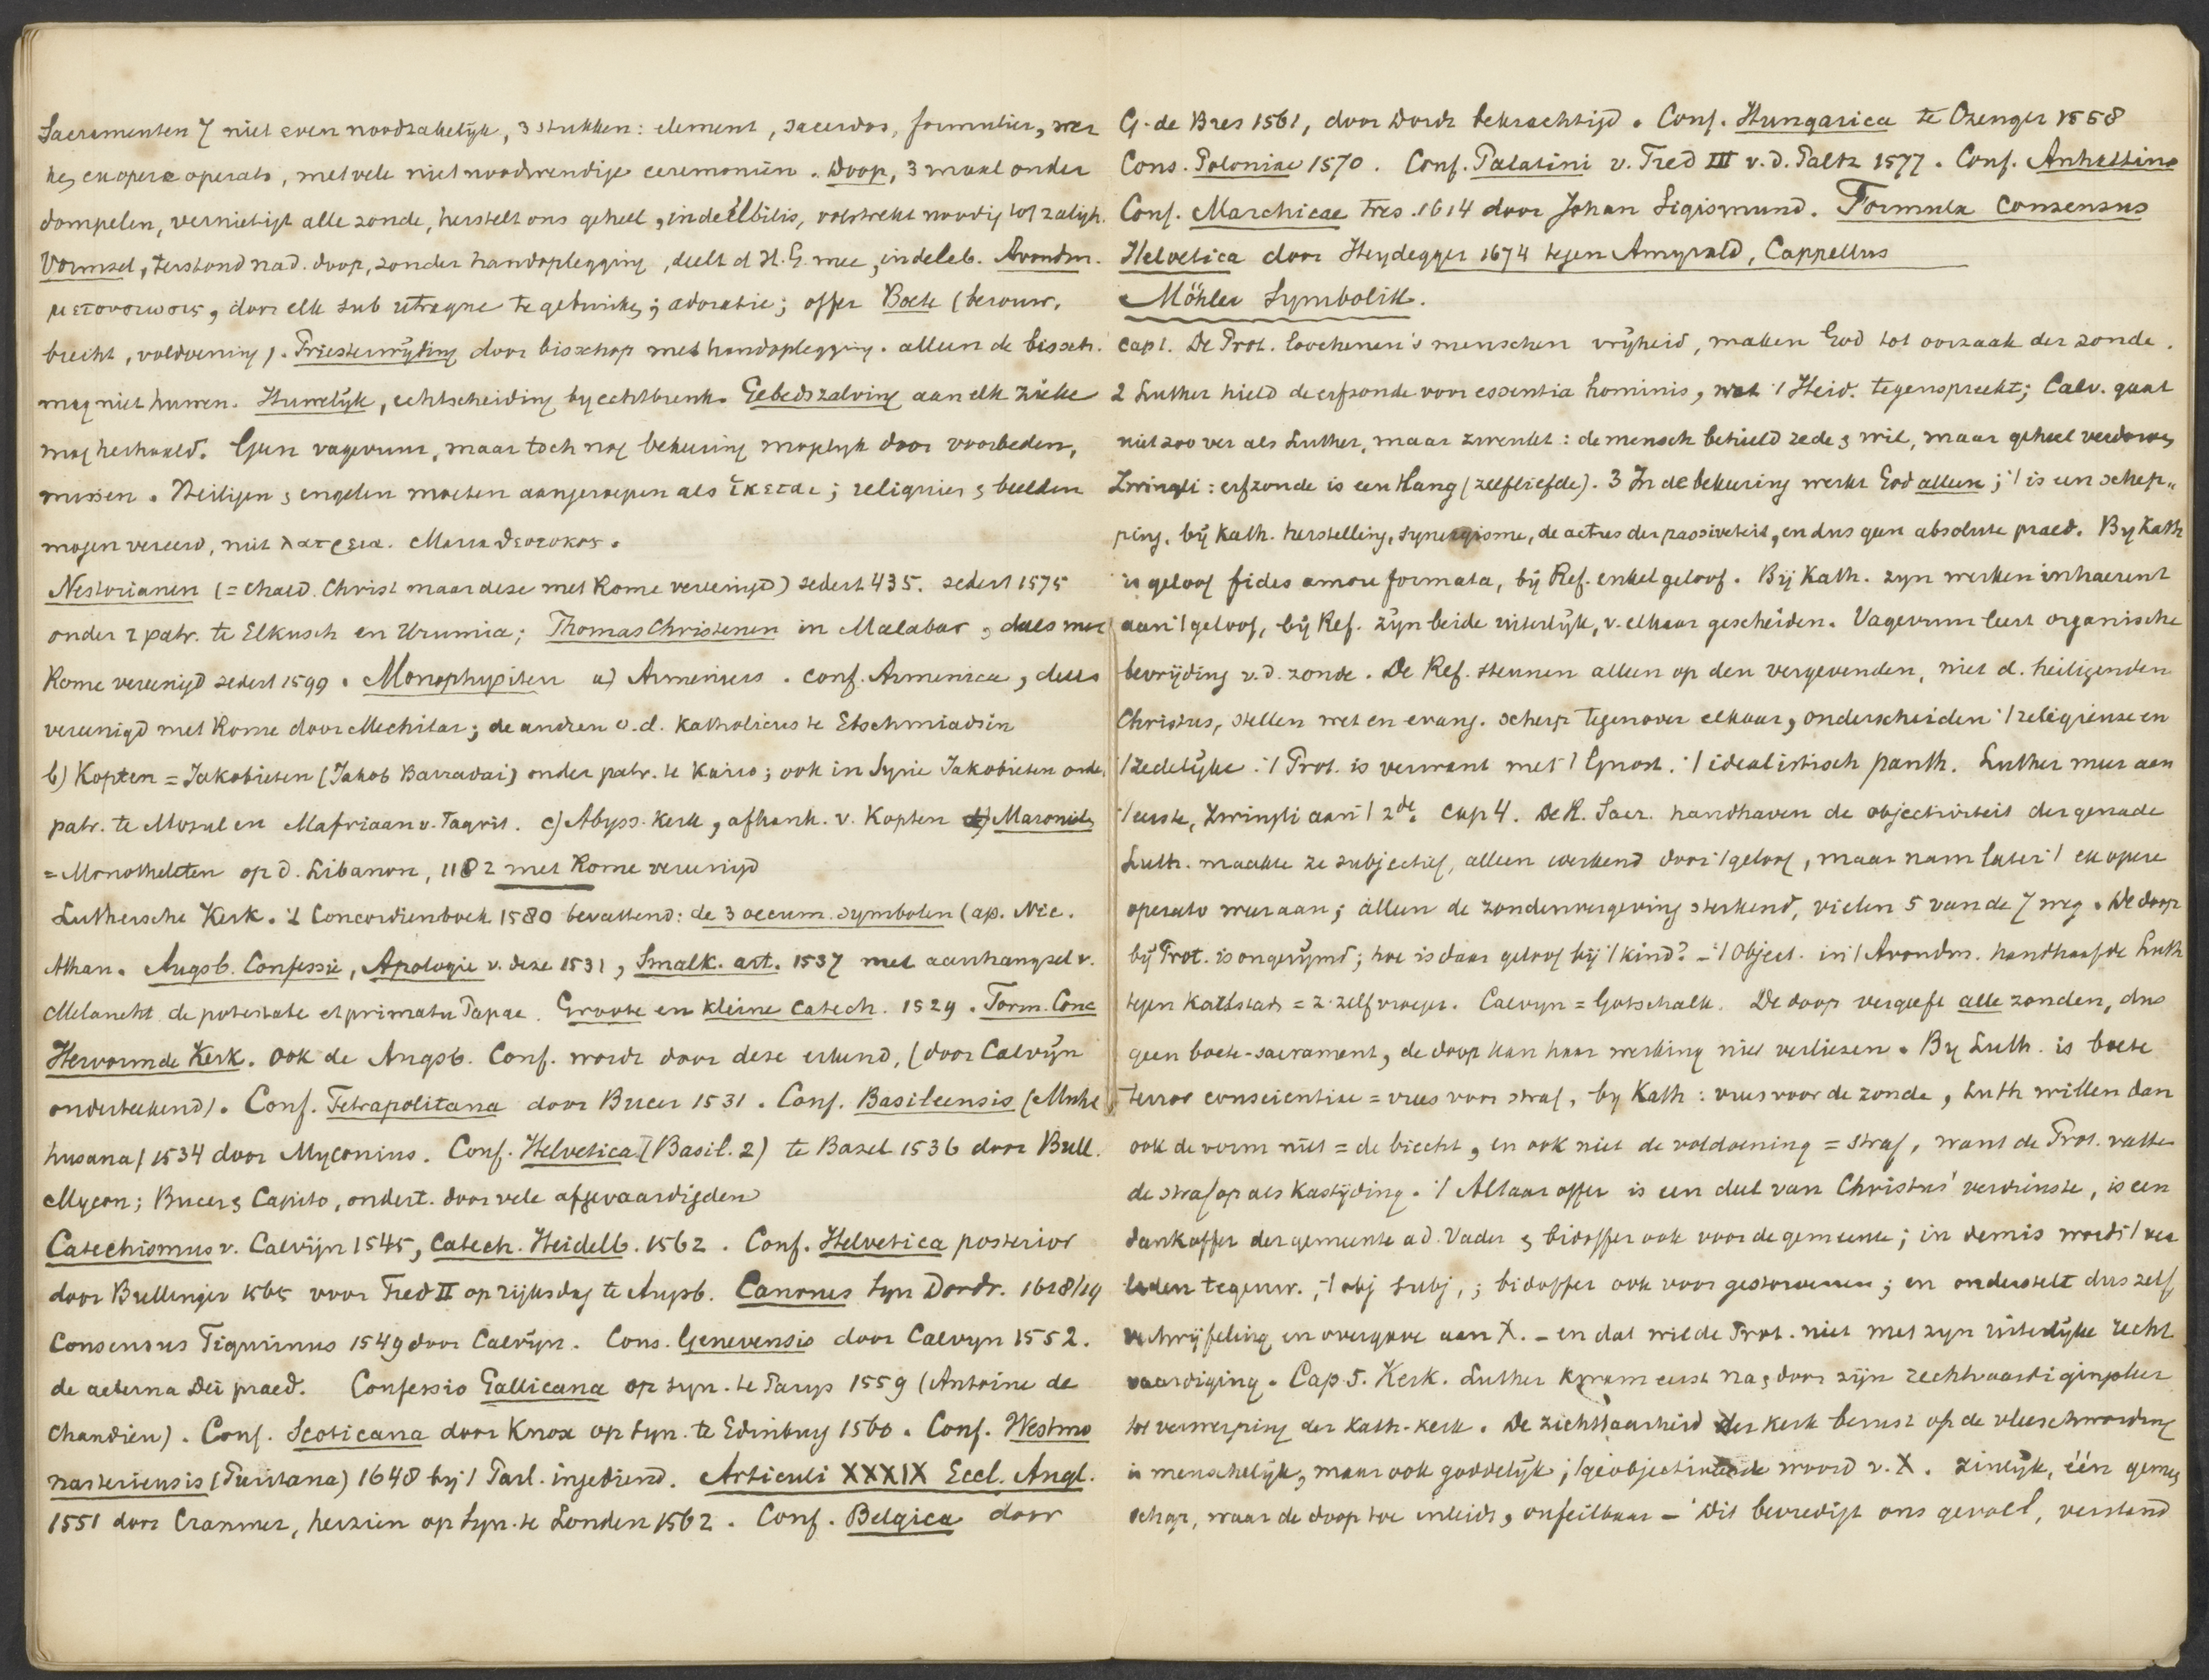 Sacramenten 7 niet even noodzakelijk, 3 stukken: element, sacerdos, formulier, wer
ke, ex opere operato, met vele niet noodwendige ceremoniën. Doop, 3 maal onder
dompelen, vernietigt alle zonde, herstelt ons geheel, indelebilis, volstrekt noodig tot zaligh.
Vormsel, terstond na d. doop, zonder handoplegging, deelt d H.G. mee, indeleb. Avondm.
μετουσιωσις, door elk sub utraque te gebruiken; adoratie; offer Boete (berouw,
biecht, voldoening). Priesterwijding door bisschop met handoplegging. alleen de bissch.
mag niet huwen. Huwelijk, echtscheiding by echtbreuk. Gebedszalving aan elk zieke
mag herhaald. Geen vagevuur, maar toch nog bekeering mogelyk door voorbeden,
missen. Heiligen & engelen moeten aangeroepen als ἱκεται; reliquien & beelden
mogen vereerd, niet λατρεια. Maria θεοτοκος.
Nestorianen (= chald. Christ maar deze met Rome vereenigd) sedert 435. sedert 1575
onder 2 patr. te Elkusch en Urumia; Thomas Christenen in Malabar, deels met
Rome vereenigd sedert 1599. Monophysiten a) Armeniers. conf. Armenica, deels
vereenigd met Rome door Mechitar; de andren o.d. Katholicus te Etschmiadsin
b) Kopten = Jakobieten (Jakob Barradai) onder patr. te Kairo; ook in Syrie Jakobieten onder
patr. te Mosul en Mafriaan v. Tagrit. c) Abyss. Kerk, afhank. v. Kopten d) Maroniten
= Monotheleten op d. Libanon, 1182 met Rome vereenigd
Luthersche Kerk. 't Concordienboek 1580 bevattend: de 3 oecum. symbolen (ap. Nic.
Athan. Augsb. Confessie, Apologie v. deze 1531, Smalk. art. 1537 met aanhangsel v.
Melancht de potestate et primatu Papae. Groote en kleine Catech. 1529. Form. Conc
Hervormde Kerk. ook de Augsb. Conf. wordt door deze erkend, (door Calvijn
onderteekend). Conf. Tetrapolitana door Bucer 1531. Conf. Basileensis (Muhl
husana) 1534 door Myconius. Conf. Helvetica I (Basil. 2) te Bazel 1536 door Bull.
Mycon; Bucer & Capito, ondert. door vele afgevaardigden
Catechismus v. Calvijn 1545, Catech. Heidelb. 1562. Conf. Helvetica posterior
door Bullinger 1565 voor Fred II op rijksdag te Augsb. Canones Syn Dordr. 1618/19
Consensus Tigurinus 1549 door Calvijn. Cons. Genevensis door Calvyn 1552.
de aeterna Dei praed. Confessio Gallicana op syn. te Parys 1559 (Antoine de
Chandieu). Conf. Scoticana door Knox op Syn. te Edinburg 1560. Conf. Westmo
nasteriensis (Puritana) 1648 by 't Parl. ingediend. Articuli XXXIX Eccl. Angl.
1551 door Cranmer, herzien op Syn. te Londen 1562. Conf. Belgica door
G. de Bres 1561, door Dordr bekrachtigd. Conf. Hungarica te Czenger 1558
Cons. Poloniae 1570. Conf. Palatini v. Fred III v. d. Paltz 1577. Conf. Anhaltina
Conf. Marchicae tres. 1614 door Johan Sigismund. Formula Consensus
Helvetica door Heydegger 1674 tegen Amyrald, Cappellus
Möhler Symbolik.
cap 1. De Prot. loochenen 's menschen vrijheid, maken God tot oorzaak der zonde.
2 Luther hield de erfzonde voor essentia hominis, wat 't Heid. tegenspreekt; Calv. gaat
niet zoo ver als Luther, maar zwenkt: de mensch behield rede & wil, maar geheel verdorven
Zwingli: erfzonde is een Hang (zelfliefde). 3 In de bekeering werkt God alleen; 't is een schep"
ping. bij Kath. herstelling, synergisme, de actus der passiviteit, en dus geen absolute praed. By Kath
is geloof fides amore formata, bij Ref. enkel geloof. Bij Kath. zyn werken inhaerent
aan 't geloof, bij Ref. zijn beide uiterlijk, v. elkaar gescheiden. Vagevuur leert organische
bevrijding v. d. zonde. De Ref. steunen alleen op den vergevenden, niet d. heiligenden
Christus, stellen wet en evang. scherp tegenover elkaar, onderscheiden 't religieuse en
't zedelijke. 't Prot. is verwant met 't Gnost. 't idealistisch panth. Luther meer aan
't eerste, Zwingli aan 't 2de. cap 4. De R. Sacr. handhaven de objectiviteit der genade
Luth. maakte ze subjectief, alleen werkend door 't geloof, maar nam later 't ex opere
operato weer aan; alleen de zondenvergeving sterkend, vielen 5 van de 7 weg. De doop
bij Prot. is ongerijmd; hoe is daar geloof bij 't kind? – 't Object. in 't Avondm. handhaafde Luth
tegen Karlstadt = z. zelf vroeger. Calvyn = Gotschalk. De doop vergeeft alle zonden, dus
geen boete-sacrament, de doop kan haar werking niet verliezen. By Luth. is boete
terror conscientiae = vrees voor straf, by Kath: vrees voor de zonde, Luth willen dan
ook de vorm niet = de biecht, en ook niet de voldoening = straf, want de Prot. vatte
de straf op als Kastijding. 't Altaaroffer is een deel van Christus' verdienste, is een
dankoffer der gemeente a d. Vader & bidoffer ook voor de gemeente; in de mis wordt 't ver
leden tegenw., 't obj subj,; bidoffer ook voor gestorvenen; en onderstelt dus zelf
vertwijfeling en overgave aan X. – en dat wilde Prot. niet met zyn uiterlijke recht
vaardiging. Cap 5. Kerk. Luther kwam eerst na & door zijn rechtvaardigingsleer
tot verwerping der Kath. kerk. De zichtbaarheid der kerk berust op de vleeschwording
is menschelijk, maar ook goddelijk; 't geobjectiveerde woord v. X. zinlijk, één gemeen
schap, waar de doop toe inleidt, onfeilbaar – Dit bevredigt ons gevoel, verstand